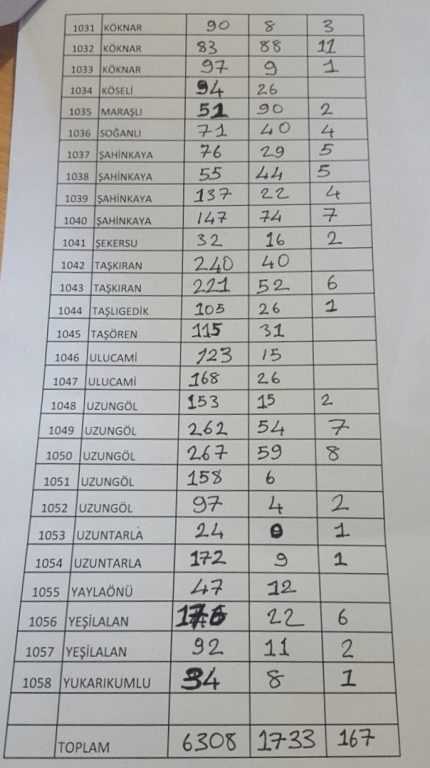 1031 KÖKNAR 90 8 3
1032 KÖKNAR 83 88 11
1033 KÖKNAR 97 9 1
1034 KÖSELİ 94 26
1035 MARAŞLI 51 90 2
1036 SOĞANLI 71 40 4
1037 ŞAHİNKAYA 76 29 5
1038 ŞAHİNKAYA 55 44 5
1039 ŞAHİNKAYA 137 22 4
1040 ŞAHİNKAYA 147 74 7
1041 ŞEKERSU 32 16 2
1042 TAŞKIRAN 240 40
1043 TAŞKIRAN 221 52 6
1044 TAŞLIGEDİK 105 26 1
1045 TAŞÖREN 115 31
1046 ULUCAMİ 123 15
1047 ULUCAMİ 168 26
1048 UZUNGÖL 153 15 2
1049 UZUNGÖL 262 54 7
1050 UZUNGÖL 267 59 8
1051 UZUNGÖL 158 6
1052 UZUNGÖL 97 4 2
1053 UZUNTARLA 24 0 1
1054 UZUNTARLA 172 9 1
1055 YAYLAÖNÜ 47 12
1056 YEŞİLALAN 176 22 6
1057 YEŞİLALAN 92 11 2
1058 YUKARIKUMLU 34 8 1
TOPLAM 6308 1733 167